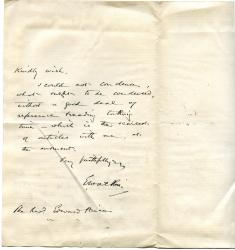 Kindly wish.
I could not condense,
what ought to be condensed,
without a good deal of
reference reading taking
time – which is the scarcest
of articles with me, at
the moment.
Very faithfully
Ernest
The Revd. Edward